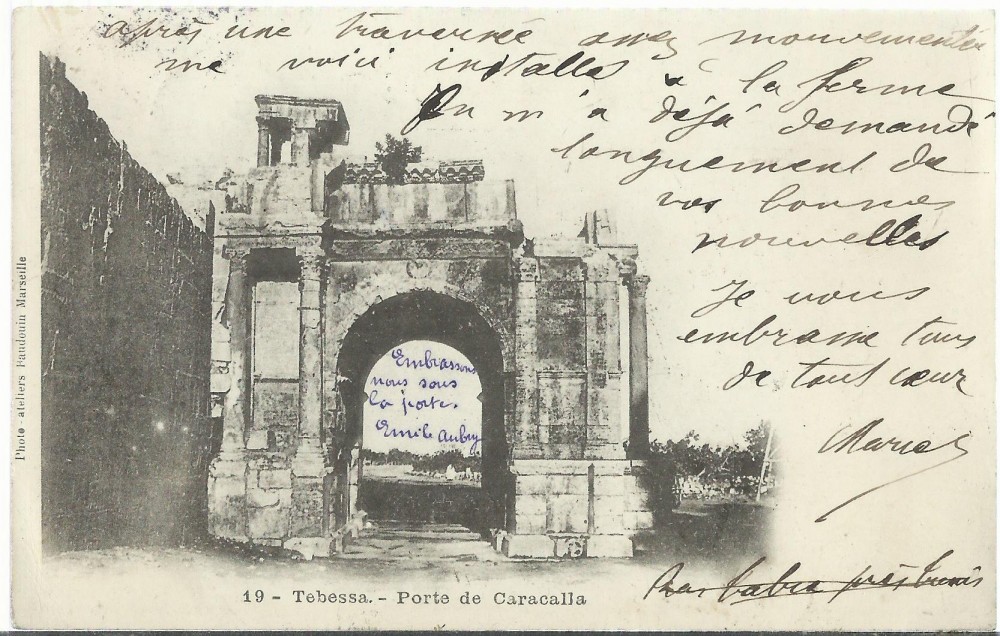 après une traversée assez mouvementée
me voici installés à la ferme
On m'a déjà demandé
longuement de
vos bonnes
nouvelles
Je vous
embrasse tous
de tout cœur
Marcel
Embrassons
nous sous
la porte.
Emile Aubry
près tunis
19 - Tebessa. - Porte de Caracalla
Photo-ateliers Baudouin Marseille